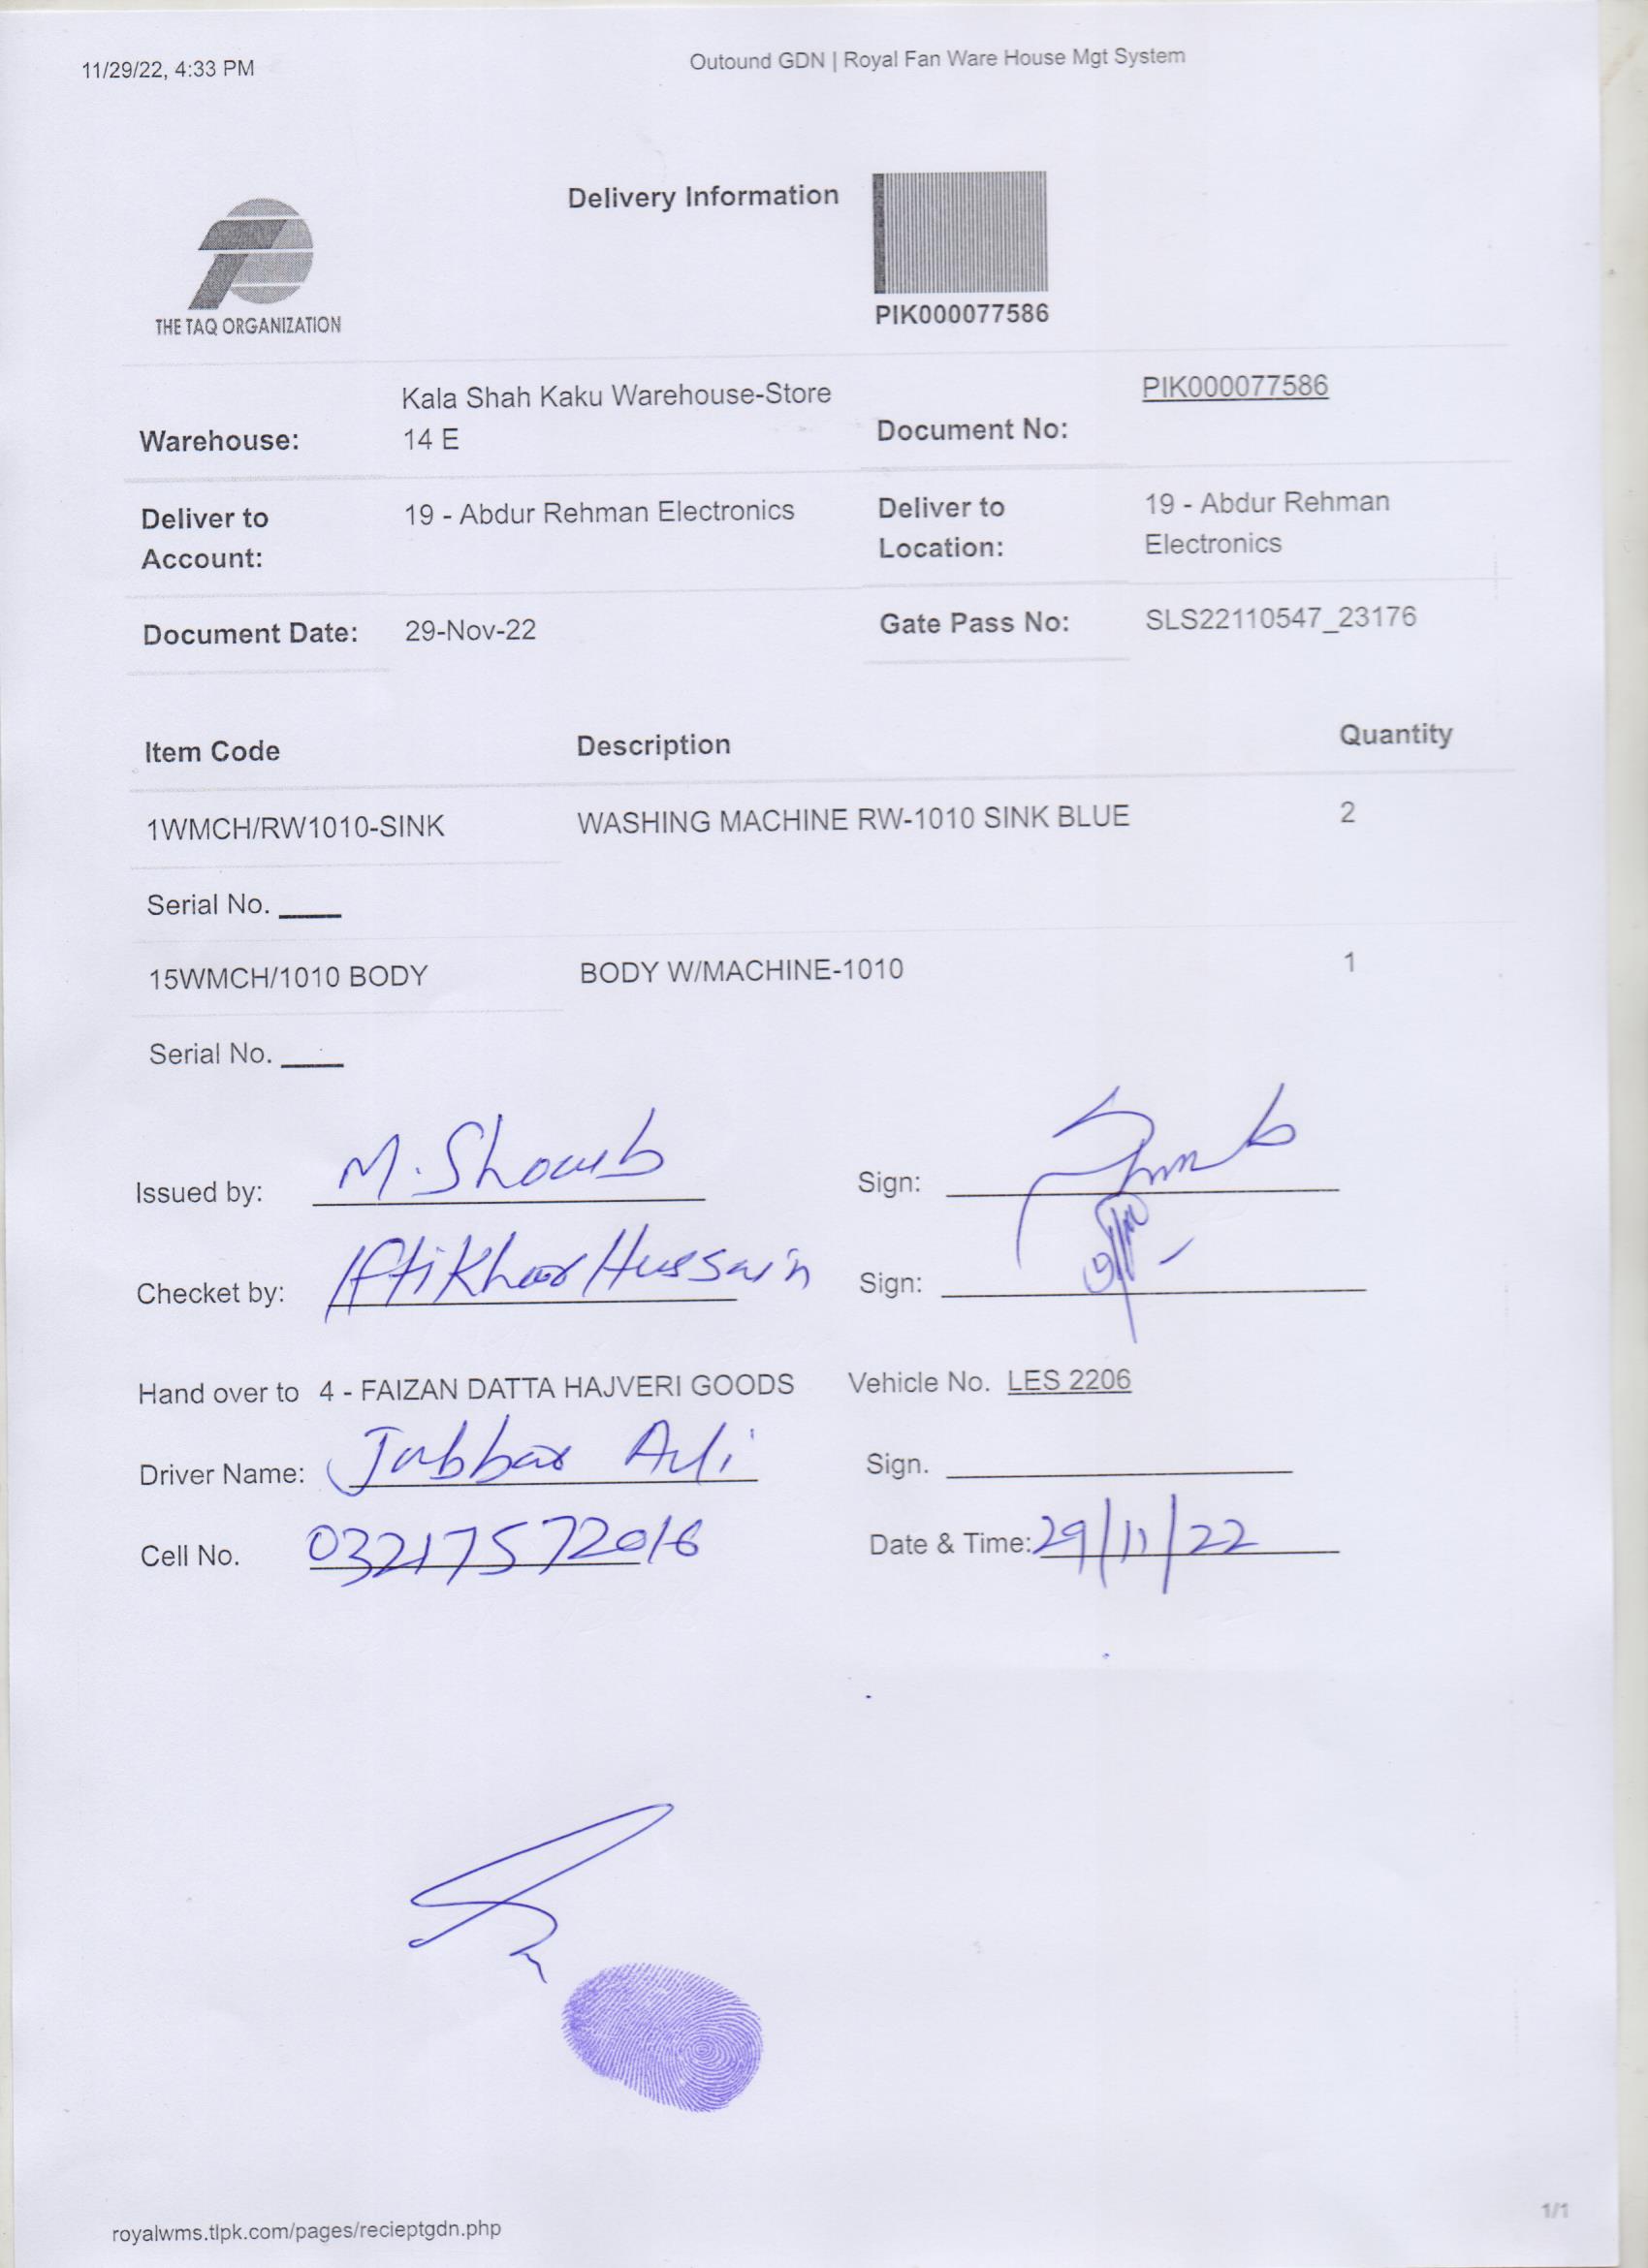 11/29/22, 4:33 PM
Outound GDN | Royal Fan Ware House Mgt System
Delivery Information
THE TAQ ORGANIZATION
PIK000077586
Warehouse: Kala Shah Kaku Warehouse-Store 14 E
Document No: PIK000077586
Deliver to Account: 19 - Abdur Rehman Electronics
Deliver to Location: 19 - Abdur Rehman Electronics
Document Date: 29-Nov-22
Gate Pass No: SLS22110547_23176
Item Code Description Quantity
1WMCH/RW1010-SINK WASHING MACHINE RW-1010 SINK BLUE 2
Serial No.
15WMCH/1010 BODY BODY W/MACHINE-1010 1
Serial No.
Issued by: M. Shoaib Sign:
Checket by: Iftikhar Hussain Sign:
Hand over to 4 - FAIZAN DATTA HAJVERI GOODS Vehicle No. LES 2206
Driver Name: Jabbar Ali Sign.
Cell No. 03217572016 Date & Time: 29/11/22
royalwms.tlpk.com/pages/recieptgdn.php
1/1